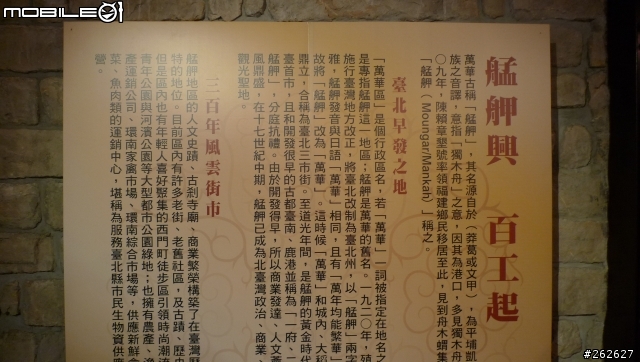 MOBILE01
艋舺興 百工起
萬華古稱「艋舺」，其名源自於（莽葛或文甲），為平埔凱
族之音譯，意指「獨木舟」之意，因其為港口，多見獨木舟
〇九年，陳賴章墾號率領福建鄉民移居至此，見到舟木蝟集
「艋舺，Moungar/Mankah）」稱之。
臺北早發之地
「萬華區」是個行政區名，若「萬華」一詞被指定在地名之
是專指艋舺這一地區；艋舺是萬華的舊名。一九二〇年，殖
施行臺灣地方改正，將臺北改制為臺北州，以「艋舺」兩字
雅，艋舺發音與日語「萬華」相同，且有「萬年均能繁華
故將「艋舺」改為「萬華」。這時候「萬華」和城內、大稻
鼎立，合稱為臺北三市街。至道光年間，是艋舺的黃金時代
臺首市，且和開發很早的古都臺南、鹿港並稱為「一府、二
艋舺」，分庭抗禮。由於開發得早，所以商業發達、人文薈
風鼎盛，在十七世紀中期，艋舺已成為北臺灣政治、商業、
觀光聖地。
三百年風雲街市
艋舺地區的人文史蹟、古剎寺廟、商業繁榮構築了在臺灣歷
特的地位。目前區內有許多老街、老舊社區，及古蹟、歷史
但是區內也有年輕人喜好聚集的西門町徒步區引領時尚潮流
青年公園與河濱公園等大型都市公園綠地；也擁有農產、漁
產運銷公司、環南家禽市場、環南綜合市場等，供應新鮮食
菜、魚肉類的運銷中心，堪稱為服務臺北縣市民生物資供應
營。
#262627